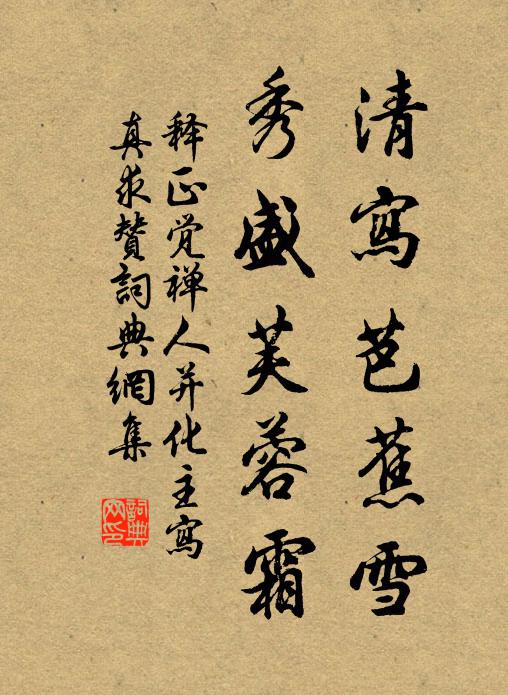 清寫芭蕉雪
秀盛芙蓉霜
释正觉禅人并化主寫
真求赞詞典網集
詞典網印